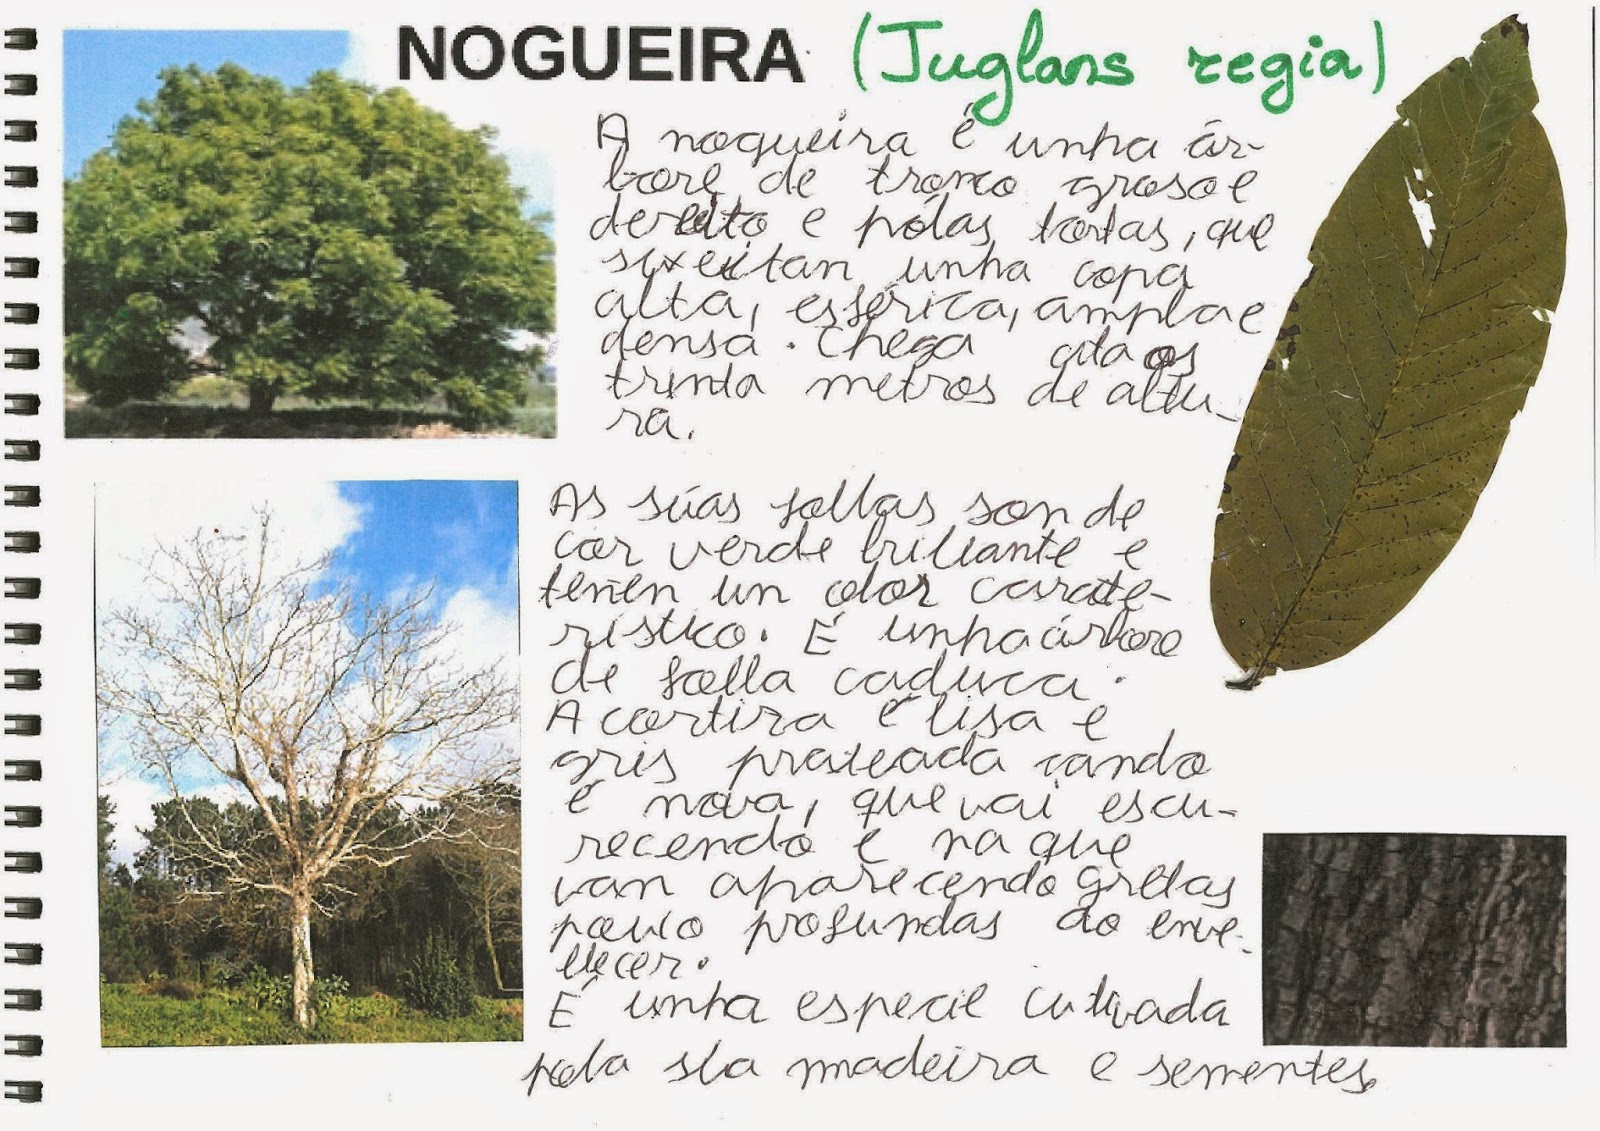 NOGUEIRA (Juglans regia)
A nogueira é unha ár-
bore de tronco groso e
dereito e pólas tortas, que
suxeitan unha copa
alta, esférica, ampla e
densa. Chega ata os
trinta metros de altu-
ra.
As súas follas son de
cor verde brillante e
teñen un olor caracte-
rístico. É unha árbore
de folla caduca.
A cortiza é lisa e
gris prateada cando
é nova, que vai escu-
recendo e na que
van aparecendo gretas
pouco profundas ao enve-
llecer.
É unha especie cultivada
pola súa madeira e sementes.